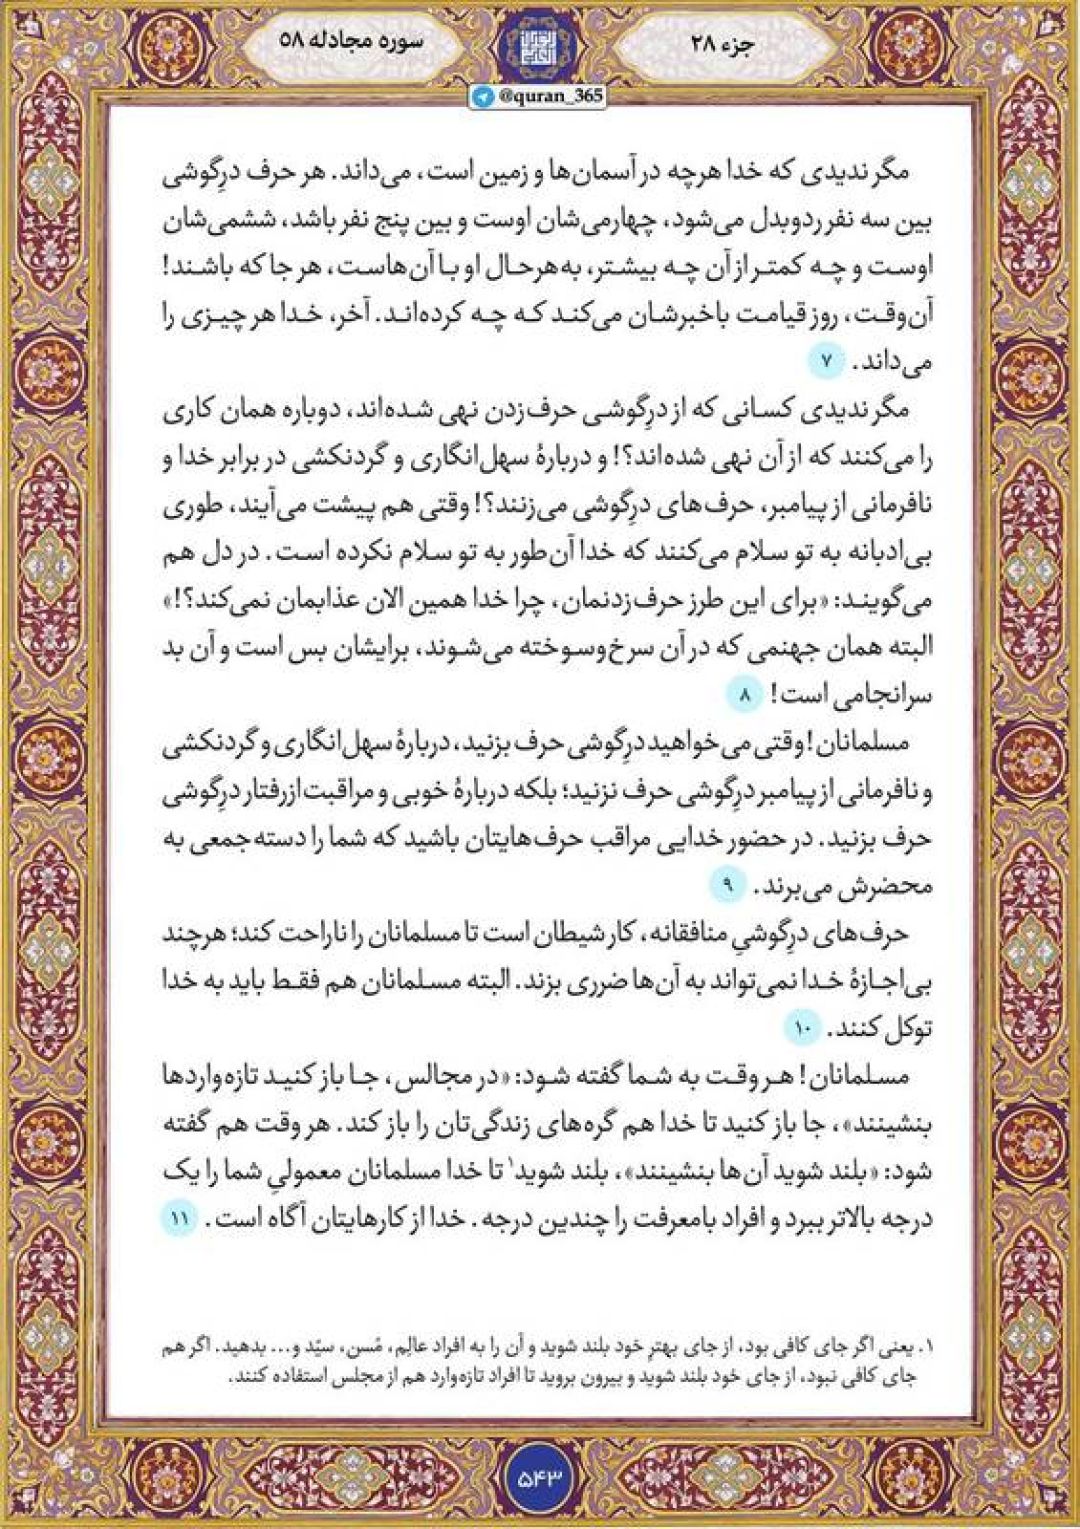 جزء ۲۸
سوره مجادله ۵۸
@quran_365
مگر ندیدی که خدا هرچه در آسمان‌ها و زمین است، می‌داند. هر حرف درِگوشی
بین سه نفر ردوبدل می‌شود، چهارمی‌شان اوست و بین پنج نفر باشد، ششمی‌شان
اوست و چه کمتر از آن چه بیشتر، به‌هرحال او با آن‌هاست، هر جا که باشند!
آن‌وقت، روز قیامت باخبرشان می‌کند که چه کرده‌اند. آخر، خدا هر چیزی را
می‌داند. ۷
مگر ندیدی کسانی که از درِگوشی حرف‌زدن نهی شده‌اند، دوباره همان کاری
را می‌کنند که از آن نهی شده‌اند؟! و دربارهٔ سهل‌انگاری و گردنکشی در برابر خدا و
نافرمانی از پیامبر، حرف‌های درِگوشی می‌زنند؟! وقتی هم پیشت می‌آیند، طوری
بی‌ادبانه به تو سلام می‌کنند که خدا آن‌طور به تو سلام نکرده است. در دل هم
می‌گویند: «برای این طرز حرف‌زدنمان، چرا خدا همین الان عذابمان نمی‌کند؟!»
البته همان جهنمی که در آن سرخ‌وسوخته می‌شوند، برایشان بس است و آن بد
سرانجامی است! ۸
مسلمانان! وقتی می‌خواهید درِگوشی حرف بزنید، دربارهٔ سهل‌انگاری و گردنکشی
و نافرمانی از پیامبر درِگوشی حرف نزنید؛ بلکه دربارهٔ خوبی و مراقبت از رفتار درِگوشی
حرف بزنید. در حضور خدایی مراقب حرف‌هایتان باشید که شما را دسته‌جمعی به
محضرش می‌برند. ۹
حرف‌های درِگوشیِ منافقانه، کار شیطان است تا مسلمانان را ناراحت کند؛ هرچند
بی‌اجازهٔ خدا نمی‌تواند به آن‌ها ضرری بزند. البته مسلمانان هم فقط باید به خدا
توکل کنند. ۱۰
مسلمانان! هر وقت به شما گفته شود: «در مجالس، جا باز کنید تازه‌واردها
بنشینند»، جا باز کنید تا خدا هم گره‌های زندگی‌تان را باز کند. هر وقت هم گفته
شود: «بلند شوید آن‌ها بنشینند»، بلند شوید۱ تا خدا مسلمانان معمولیِ شما را یک
درجه بالاتر ببرد و افراد بامعرفت را چندین درجه. خدا از کارهایتان آگاه است. ۱۱
۱. یعنی اگر جای کافی بود، از جای بهترِ خود بلند شوید و آن را به افراد عالِم، مُسن، سیّد و... بدهید. اگر هم
جای کافی نبود، از جای خود بلند شوید و بیرون بروید تا افراد تازه‌وارد هم از مجلس استفاده کنند.
۵۴۳